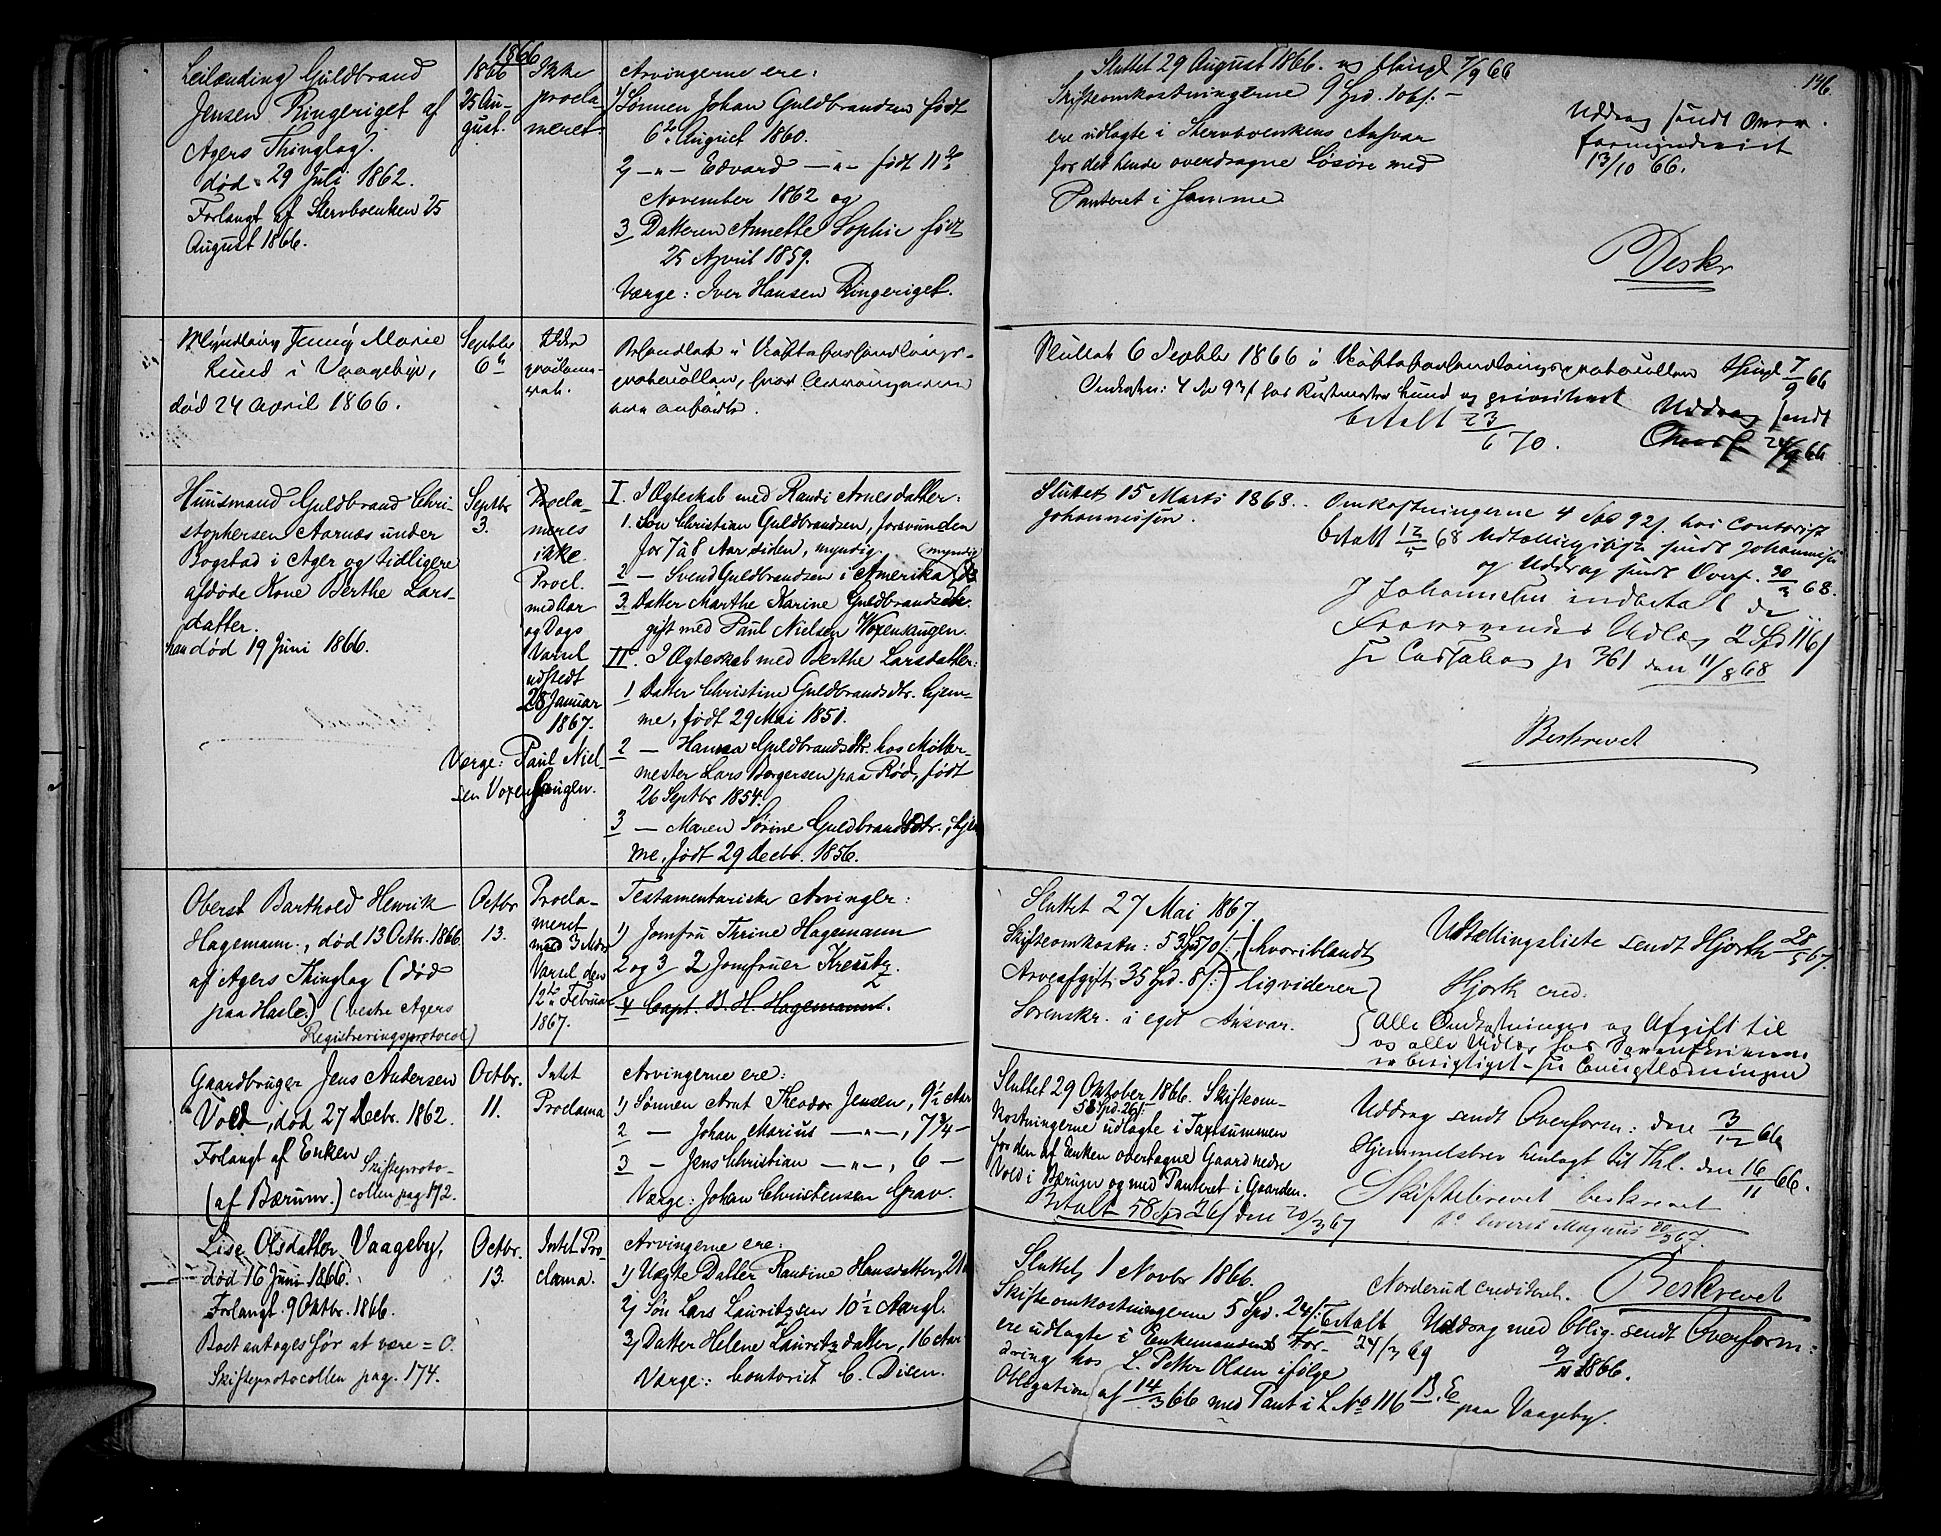 146
1866
Leilænding Guldbrand
Jensen Ringeriget af
Agers Thinglag.
død 29 Juli 1862.
Forlangt af Stervboenken 25
August 1866.
1866
25 Au-
gust.
Ikke
procla-
meret
Arvingerne ere:
1) Sønnen Johan Guldbrandsen født
6te August 1860.
2) — " — Edvard — " — født 11te
November 1862 og
3 Datteren Annette Sophie født
25 April 1859.
Værge: Iver Hansen Ringeriget.
Sluttet 29 August 1866. og 7/9 66
Skifteomkostningerne 9 Spd. 106 ß. —
ere udlagte i Stervboenkens Ansvar
for det hende overdragne Løsøre med
Panteret i samme
Uddrag sendt Over-
formynderiet
13/10 66.
Beskr
Myndling Jenny Marie
Lund i Vaagebye,
død 24 april 1866.
Septbr
6te
Uden
proclama-
Behandlet i Skiftebehandlings-
protocollen, hvor Arvingerne
ere anførte.
Sluttet 6 Septbr 1866 i Skiftebehandlingsprotocollen 7/9 66
Omkostn: 4 Sp 93 ß hos Rustmester Lund og prioriteret
betalt 23/6 70.
Uddrag sendt
Overf 24/9 66
Huusmand Guldbrand Chri-
stophersen Aarnæs under
Bogstad i Ager og tidligere
afdøde Kone Berthe Lars-
datter.
han død 19 Juni 1866.
Septbr
3.
Procla-
meres
ikke.
Procl.
med Aar
og Dags
Varsel
udstedt
28 Januar
1867.
Værge: Paul Niel-
sen Voxenhaugen.
I. I Ægteskab med Randi Arnesdatter:
1. Søn Christian Guldbrandsen, forsvunden
for 7 à 8 Aar siden, myndig.
2 — Svend Guldbrandsen i Amerika (myndig)
3. Datter Marthe Karine Guldbrandsdtr.
gift med Paul Nielsen Voxenhaugen.
II. I Ægteskab med Berthe Larsdatter:
1 Datter Christine Guldbrandsdtr. hjem-
me, født 29 Mai 1851.
2 — Hanna Guldbrandsdtr. hos Møller-
mester Lars Borgersen paa Rød, født
26 Septbr 1854.
3 — Maren Sørine Guldbrandsdtr., hjem
me, født 29 Decbr. 1856.
Sluttet 15 Marts 1868.
Johannissen.
Omkostningerne 4 Spd 92 ß. hos Contorist
betalt 12/5 68 Udtællingsliste sendt Johannisen
og Uddrag sendt Overf. 30/3 68.
J Johannesen indbetalt de
Udlæg 2 Spd 116 ß
Cassabog p 361 den 11/8 68
Beskrevet
Oberst Barthold Henrik
Hagemann, død 13 Octbr. 1866
af Agers Thinglag (død
paa Hasle.) (vestre Agers
Registreringsprotocol)
Octbr
13.
Procla-
meret
med 3 Mdrs
Varsel den
12te Februar
1867.
Testamentariske Arvinger:
1) Jomfru Thrine Hagemann
2 og 3 2 Jomfruer Kreutz.
4 Capt. B. H. Hagemann.
Sluttet 27 Mai 1867.
Skifteomkostn: 53 Spd 70 ß: hvoriblandt
Arveafgift 35 Spd. 8 ß: ligviderer
Sorenskr. i eget Ansvar.
Udtællingsliste sendt Hjorth 28/5 67.
Hjorth cred.
Alle Omkostninger og Afgift til
og alle Udlæg hos Sorenskriveren
er berigtiget
Gaardbruger Jens Andersen
Vold, død 27 Decbr. 1862.
Forlangt af Enken
(af Bærum.)
Skifteproto-
collen pag 172.
Octbr.
11.
Intet
Proclama
Arvingerne ere:
1) Sønnen Arnt Theodor Jensen, 9½ Aar
2 — Johan Marius — " —, 7¾ —
3 — Jens Christian — " —, 6 —
Værge: Johan Christensen Grav.
Sluttet 29 Oktober 1866. Skifteom-
58 Spd. 26 ß:
kostningerne udlagte i Taxtsummen
for den af Enken overtagne Gaard nedre
Vold i Bærum og med Panteret i Gaarden.
Betalt 58 Spd 26 ß den 20/3 67
Uddrag sendt Overform: den 3/12 66
Hjemmelsbrev henlagt til Thl. den 16/11 66.
Skiftebrevet beskrevet
Magnus 20/3 67.
Lise Olsdatter Vaageby,
død 16 Juni 1866.
Forlangt 9 Oktbr. 1866.
Boet antages før at være = 0.
Skifteprotocollen pag. 174.
Octbr.
13.
Intet Pro-
clama.
Arvingerne ere:
1) Uægte Datter Randine Hansdatter, 21
2) Søn Lars Lauritzsen 10½ Aar gl.
3) Datter Helene Lauritzdatter, 16 Aar
Værge: Contorist C. Disen.
Sluttet 1 Novbr 1866.
Skifteomkostningerne 5 Spd. 24 ß: betalt
ere udlagte i Enkemandens For- 24/3 69
dring hos L. Petter Olsen ifølge
Obligation af 14/3 66 med Pant i L No 116 B. E
paa Vaageby.
Norderud crediteret.
Beskrevet
Uddrag med Oblig. sendt Overform:
9/11 1866.